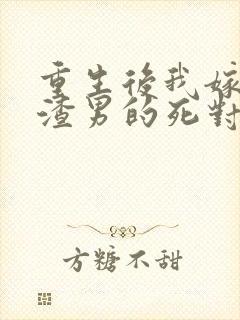 重生後我嫁
渣男的死對
方糖不甜